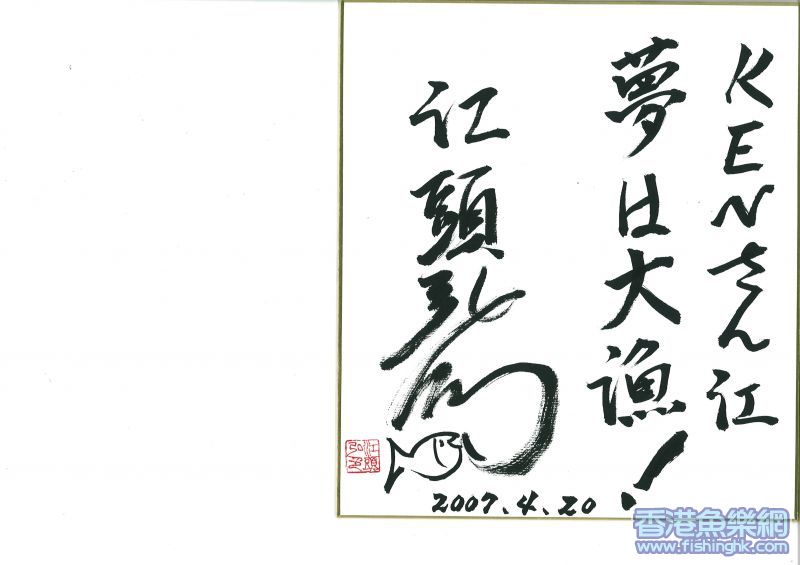 KENさん江
夢は大漁!
江頭弘則
江頭
2007.4.20
香港魚樂網
www.fishinghk.com